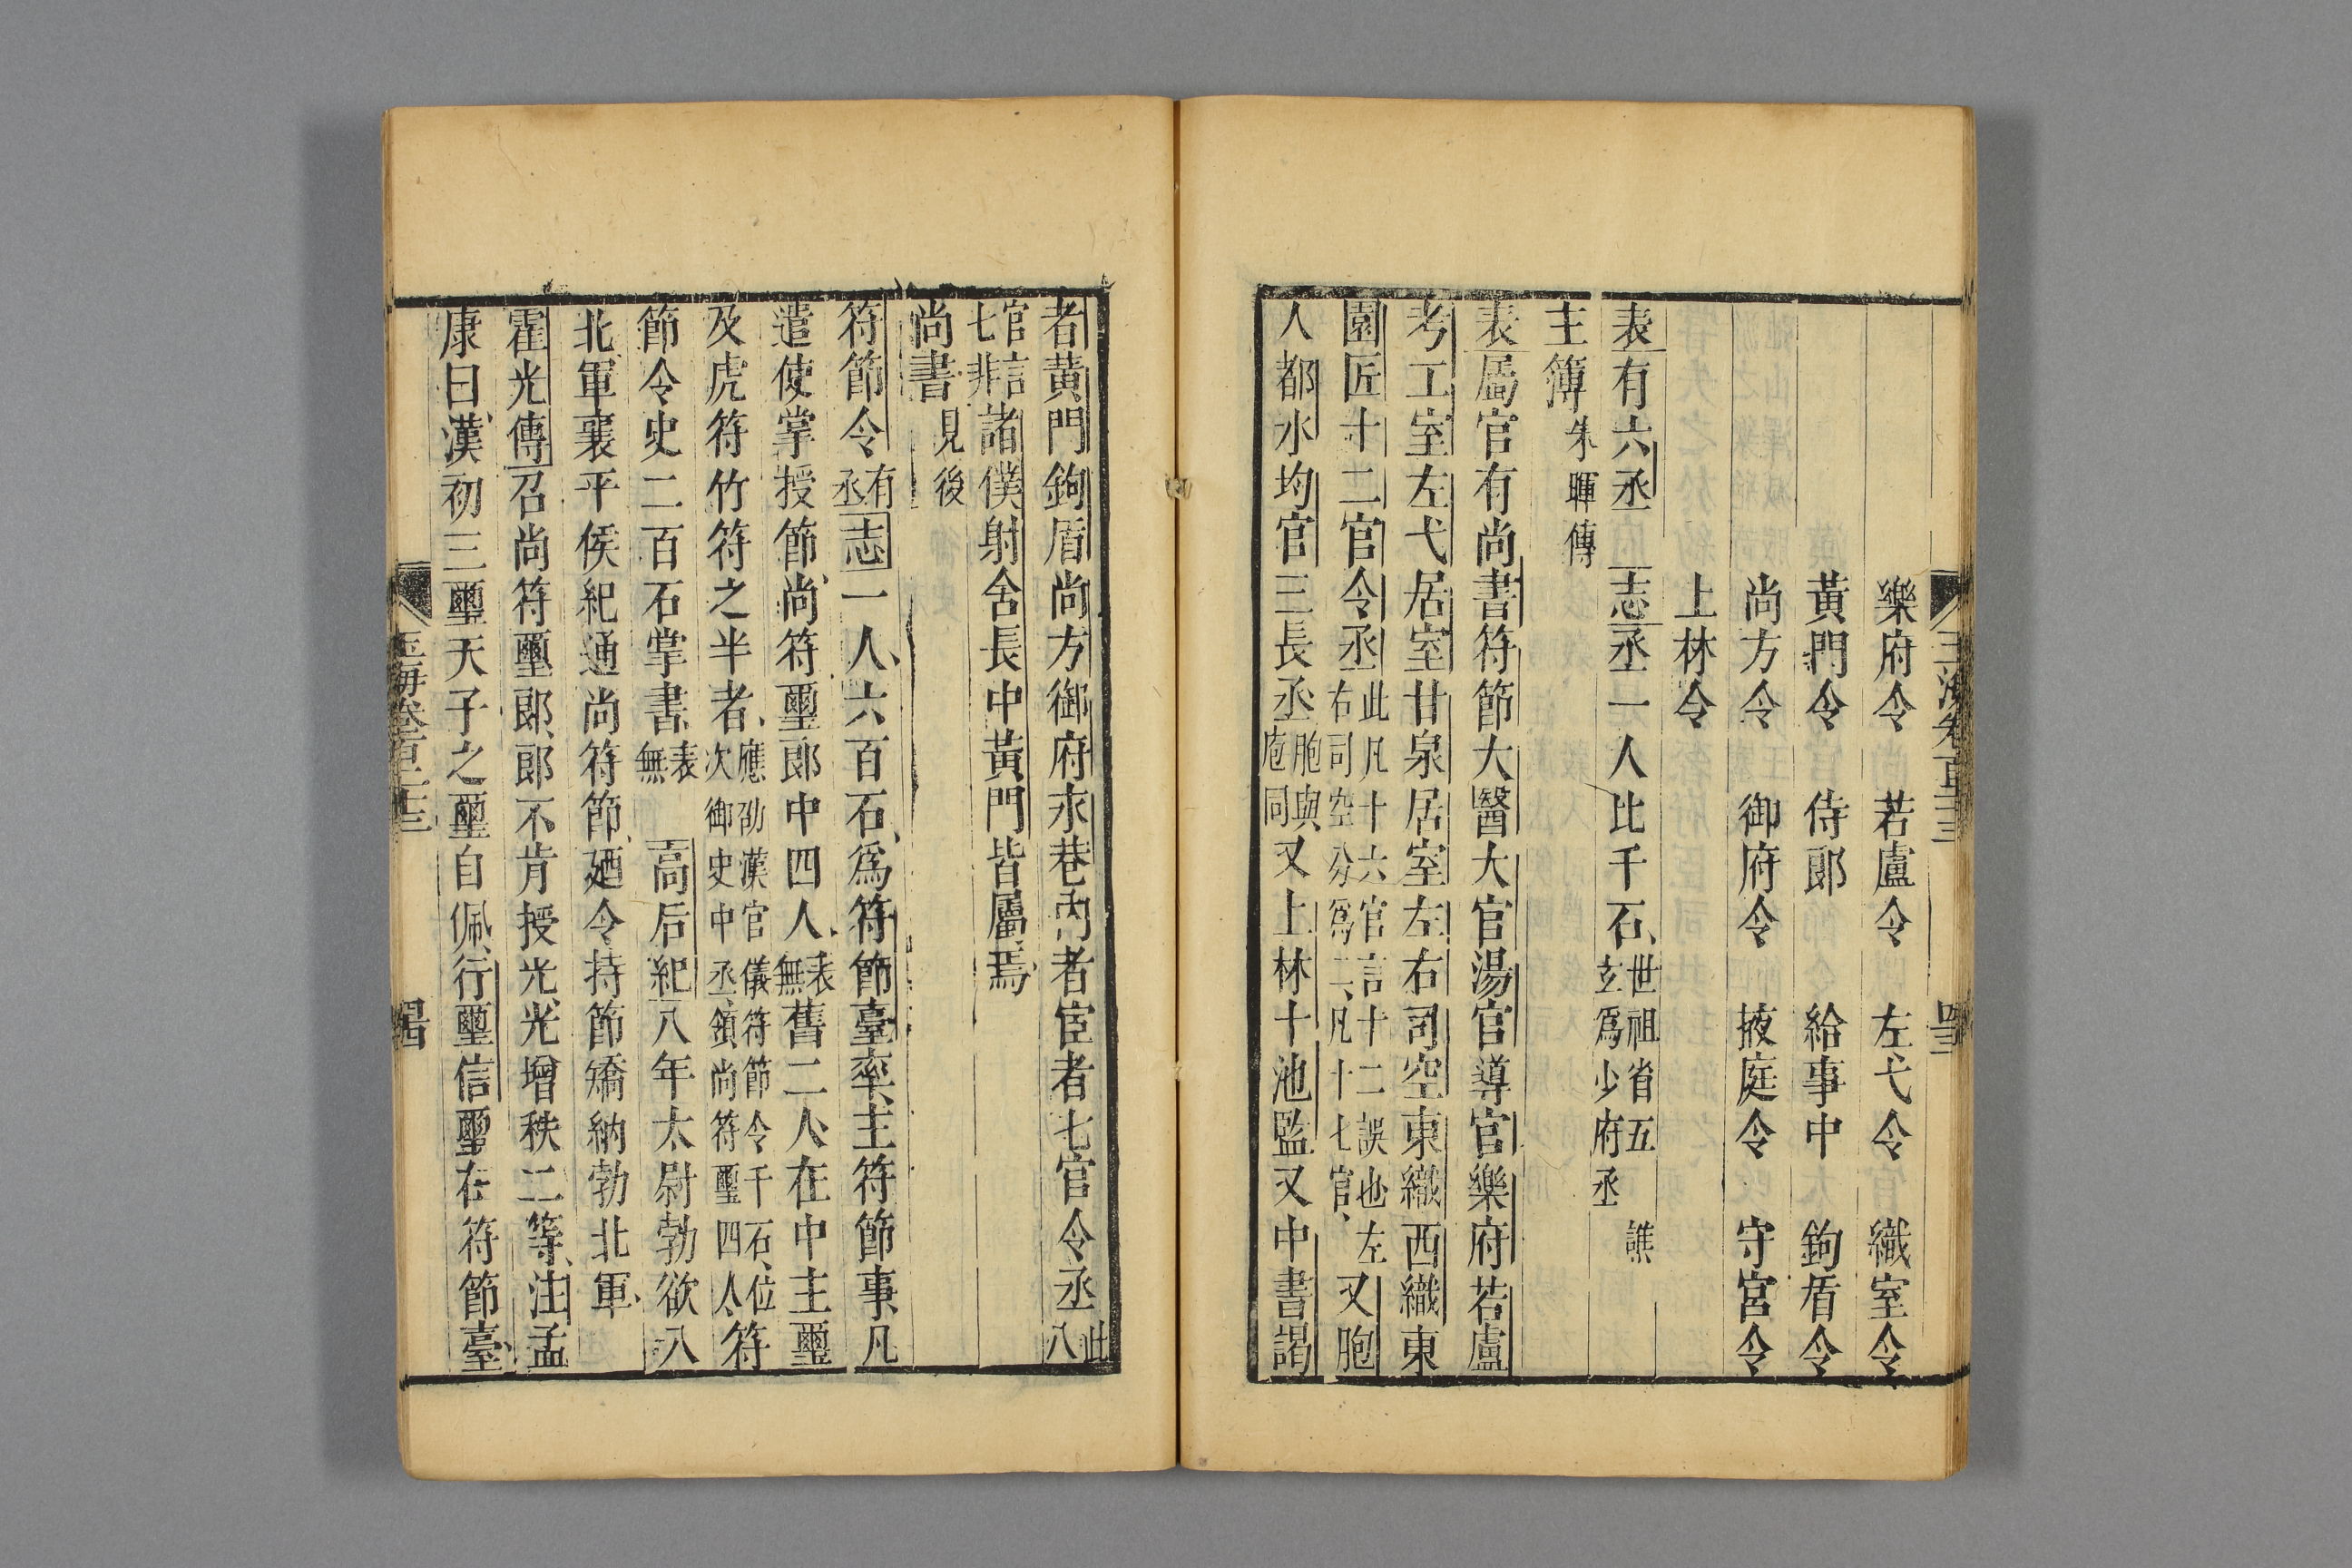 樂府令　若盧令　左弋令　織室令
黃門令　侍郎　給事中　鉤盾令
尚方令　御府令　掖庭令　守宮令
上林令
表有六丞　志丞一人比千石世祖省五譙玄爲少府丞
主簿朱暉傳
表屬官有尚書符節大醫大官湯官導官樂府若盧
考工室左弋居室甘泉居室左右司空東織西織東
園匠十二官令丞此凡十六官言十二誤也左右司空分爲二凡十七官又胞
人都水均官三長丞胞與庖同又上林十池監又中書謁
者黃門鉤盾尚方御府永巷內者宦者七官令丞此八
官言七非諸僕射舍長中黃門皆屬焉
尚書見後
符節令有丞志一人六百石爲符節臺率主符節事凡
遣使掌授節尚符璽郎中四人表無舊二人在中主璽
及虎符竹符之半者應劭漢官儀符節令千石位次御史中丞領尚符璽四人符
節令史二百石掌書表無　高后紀八年太尉勃欲入
北軍襄平侯紀通尚符節廼令持節矯納勃北軍
霍光傳召尚符璽郎郎不肯授光光增秩二等注孟
康曰漢初三璽天子之璽自佩行璽信璽在符節臺